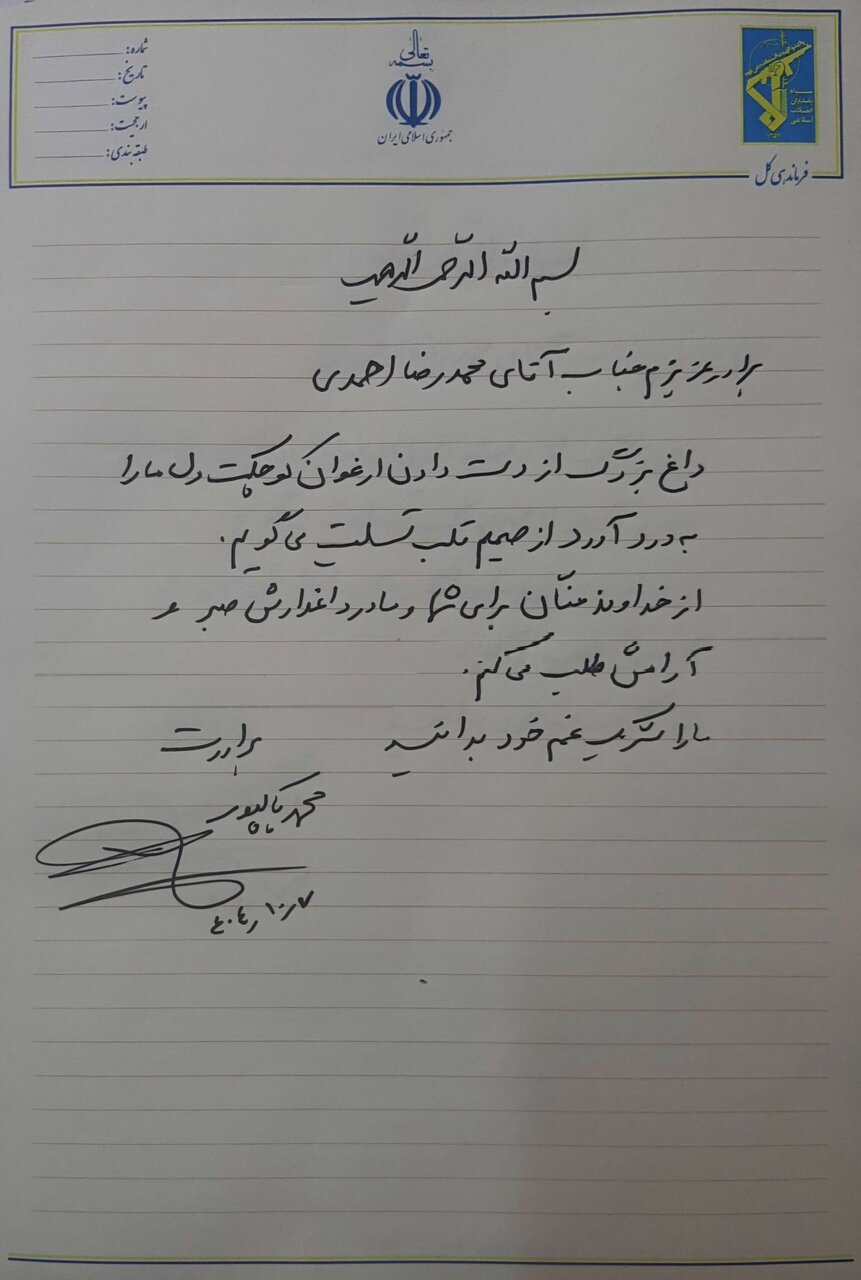 بسمه تعالی
جمهوری اسلامی ایران
شماره:
تاریخ:
پیوست:
ارجحیت:
طبقه بندی:
سپاه
پاسداران
انقلاب
اسلامی
فرماندهی کل
بسم الله الرحمن الرحیم
برادر عزیزم جناب آقای محمدرضا احمدی
داغ بزرگ از دست دادن ارغوان کوچکت دل ما را
به درد آورد از صمیم قلب تسلیت می گویم.
از خداوند منّان برای شما و مادر داغدارش صبر و
آرامش طلب می کنم.
ما را شریک غم خود بدانید
برادرت
محمد پاکپور
۴۰۴٫۱۰٫۷